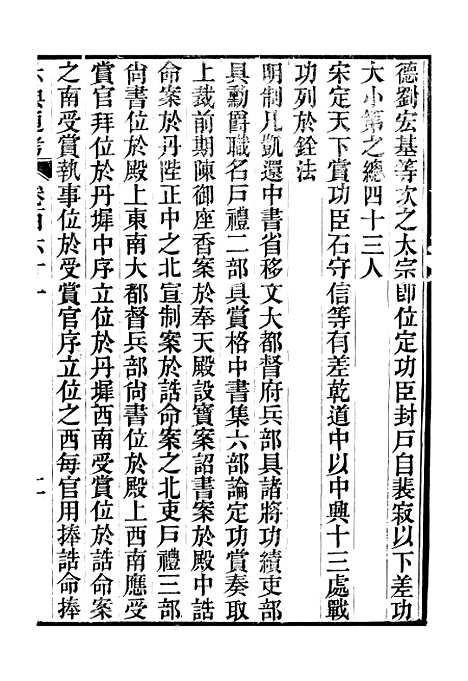 德劉宏基等次之太宗卽位定功臣封戶自裴寂以下差功
大小第之總四十三人
宋定天下賞功臣石守信等有差乾道中以中興十三處戰
功列於銓法
明制凡凱還中書省移文大都督府兵部具諸將功績吏部
具勳爵職名戶禮二部具賞格中書集六部論定功賞奏取
上裁前期陳御座香案於奉天殿設寶案詔書案於殿中誥
命案於丹陛正中之北宣制案於誥命案之北吏戶禮三部
尚書位於殿上東南大都督兵部尚書位於殿上西南應受
賞官拜位於丹墀中序立位於丹墀西南受賞位於誥命案
之南受賞執事位於受賞官序立位之西每官用捧誥命捧
六典通考 卷百六十一 二